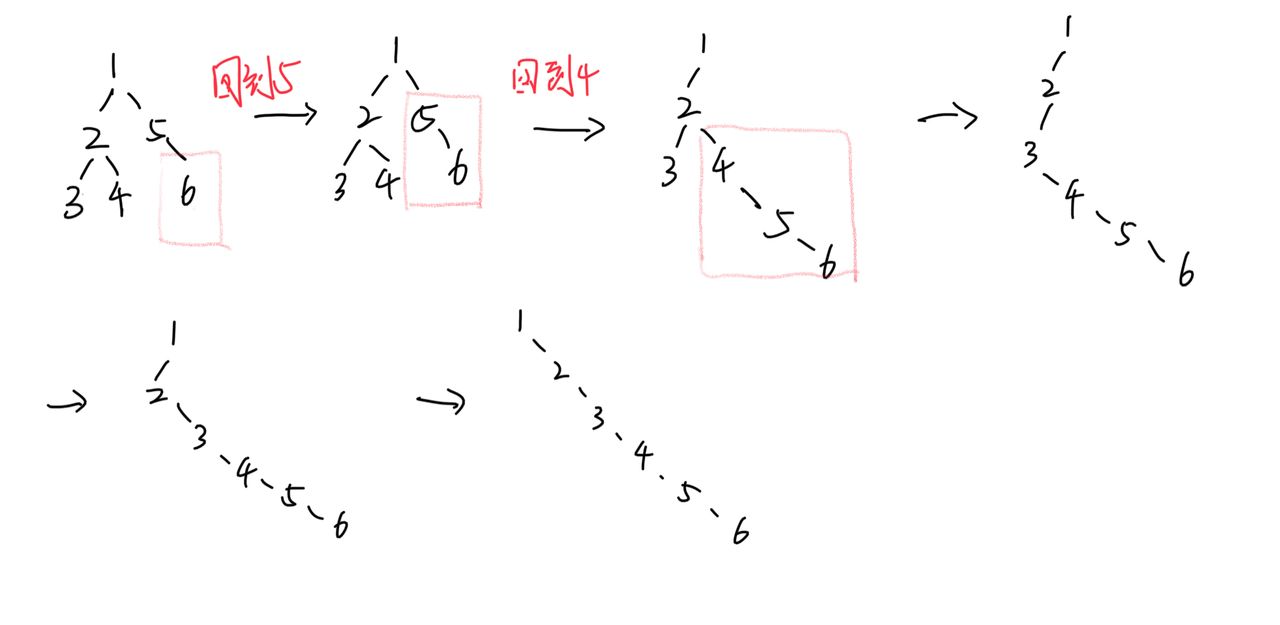 1
2 5
3 4 6
回到5
1
2 5
3 4 6
回到4
1
2
3 4
5
6
1
2
3
4
5
6
1
2
3
4
5
6
1
2
3
4
5
6